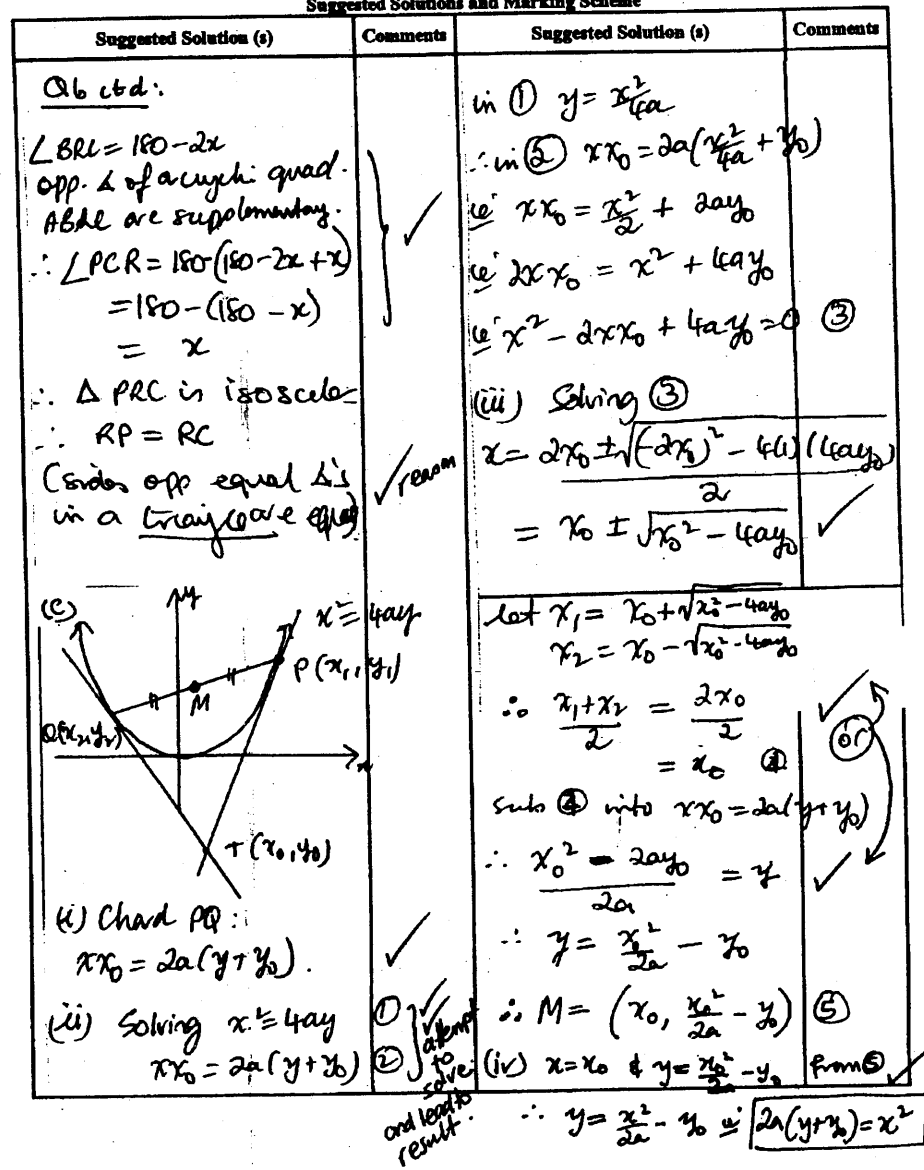 Suggested Solutions and Marking Scheme
Suggested Solution (s)
Comments
Suggested Solution (s)
Comments
Q6 ctd:
∠BRC = 180 - 2x
opp. ∠ of a cyclic quad.
are supplementary.
∴ ∠PCR = 180-(180-2x+x)
= 180-(180-x)
= x
∴ Δ PRC is isosceles
∴ RP = RC
(sides opp equal ∠'s
in a triangle are equal)
✓
✓ reason
(c)
y
x² = 4ay
P(x₁, y₁)
M
Q(x₂, y₂)
x
T(x₀, y₀)
(i) Chord PQ:
xx₀ = 2a(y+y₀). ✓
(ii) Solving x² = 4ay ①
xx₀ = 2a(y+y₀) ②
✓✓
attempt
to
solve
and lead to
result.
in ① y = x²/4a
∴ in ② xx₀ = 2a(x²/4a + y₀)
ie xx₀ = x²/2 + 2ay₀
ie 2xx₀ = x² + 4ay₀
ie x² - 2xx₀ + 4ay₀ = 0 ③
(iii) Solving ③
x = 2x₀ ± √(-2x₀)² - 4(1)(4ay₀) / 2
= x₀ ± √x₀² - 4ay₀ ✓
let x₁ = x₀ + √x₀² - 4ay₀
x₂ = x₀ - √x₀² - 4ay₀
∴ x₁+x₂/2 = 2x₀/2 ✓
= x₀ ④
or
sub ④ into xx₀ = 2a(y+y₀)
∴ x₀² - 2ay₀/2a = y ✓
∴ y = x₀²/2a - y₀
∴ M = (x₀, x₀²/2a - y₀) ⑤
(iv) x = x₀ & y = x₀²/2a - y₀ from ⑤ ✓
∴ y = x²/2a - y₀ ie 2a(y+y₀) = x²